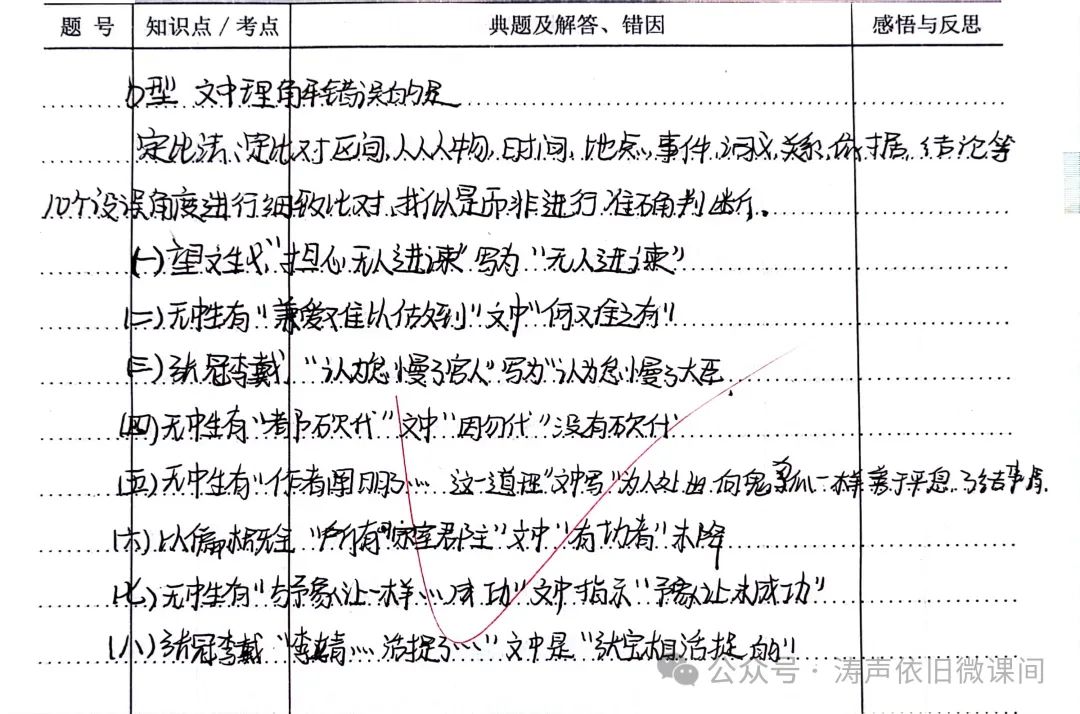 题 号 知识点/考点 典题及解答、错因 感悟与反思
D型 文中理解错误的是
定比法:定比对区间,从人物,时间,地点,事件,词义,关系,依据,结论等
10个设误角度进行细致比对,找似是而非进行准确判断。
(一)望文生义“担心无人进谏”写为“无人进谏”
(二)无中生有“兼爱难以做到”文中“何难之有”
(三)张冠李戴,“认为怠慢了宫人”写为“认为怠慢了大臣,
(四)无中生有“都砍伐”文中“因勿伐”没有砍伐
(五)无中生有“作者阐明了…这一道理”文中写“为人处世 向 一样善于平息了结事
(六)以偏概全“所有”宗室郡主”文中“有功者”未降
(七)无中生有“与予象让一样…成功”文中指示“予象让未成功”
(八)张冠李戴“李靖…活捉了…”文中是“张宝相活捉的”
公众号·涛声依旧微课间